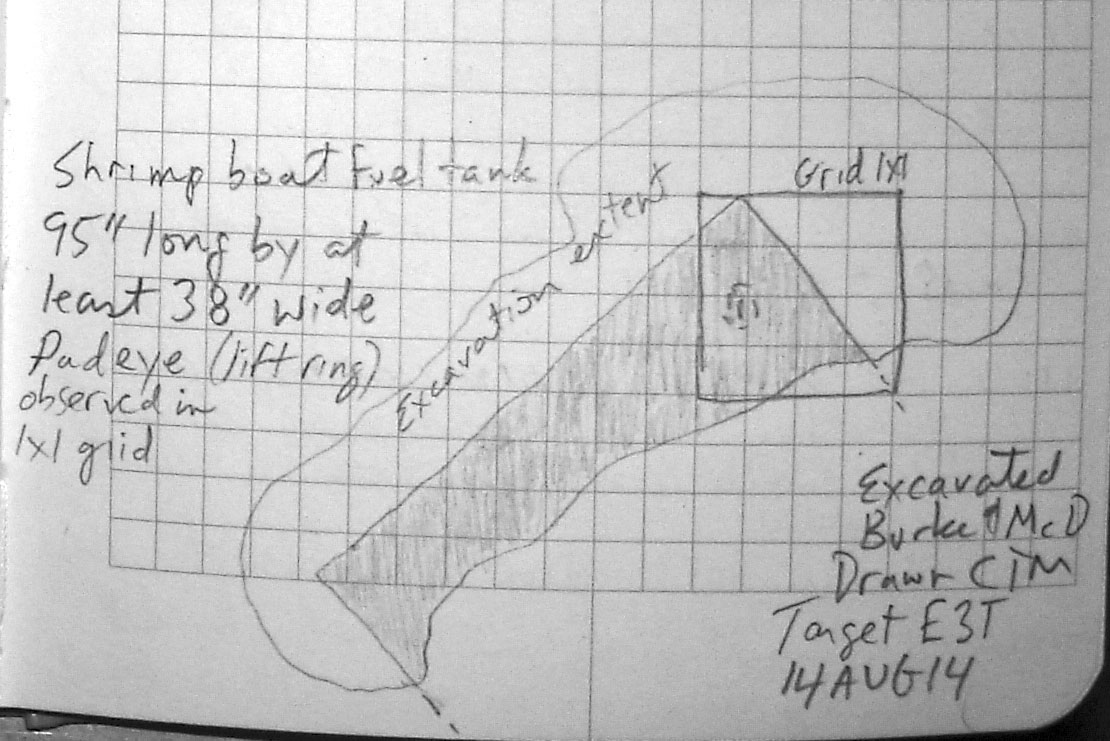 Shrimp boat fuel tank
95" long by at
least 38" wide
Padeye (lift ring)
observed in
1x1 grid
Excavation extent
Grid 1x1
Excavated
Burke & McD
Drawn CTM
Target E3T
14 AUG 14